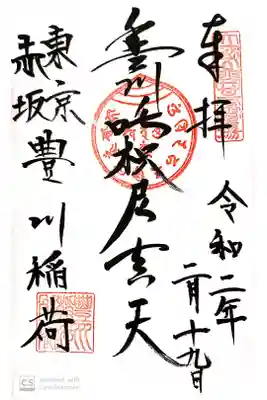 奉拝
令和二年
二月十九日
豊川吒枳尼真天
東京
赤坂
豊川稲荷
CS
scanned with
CamScanner